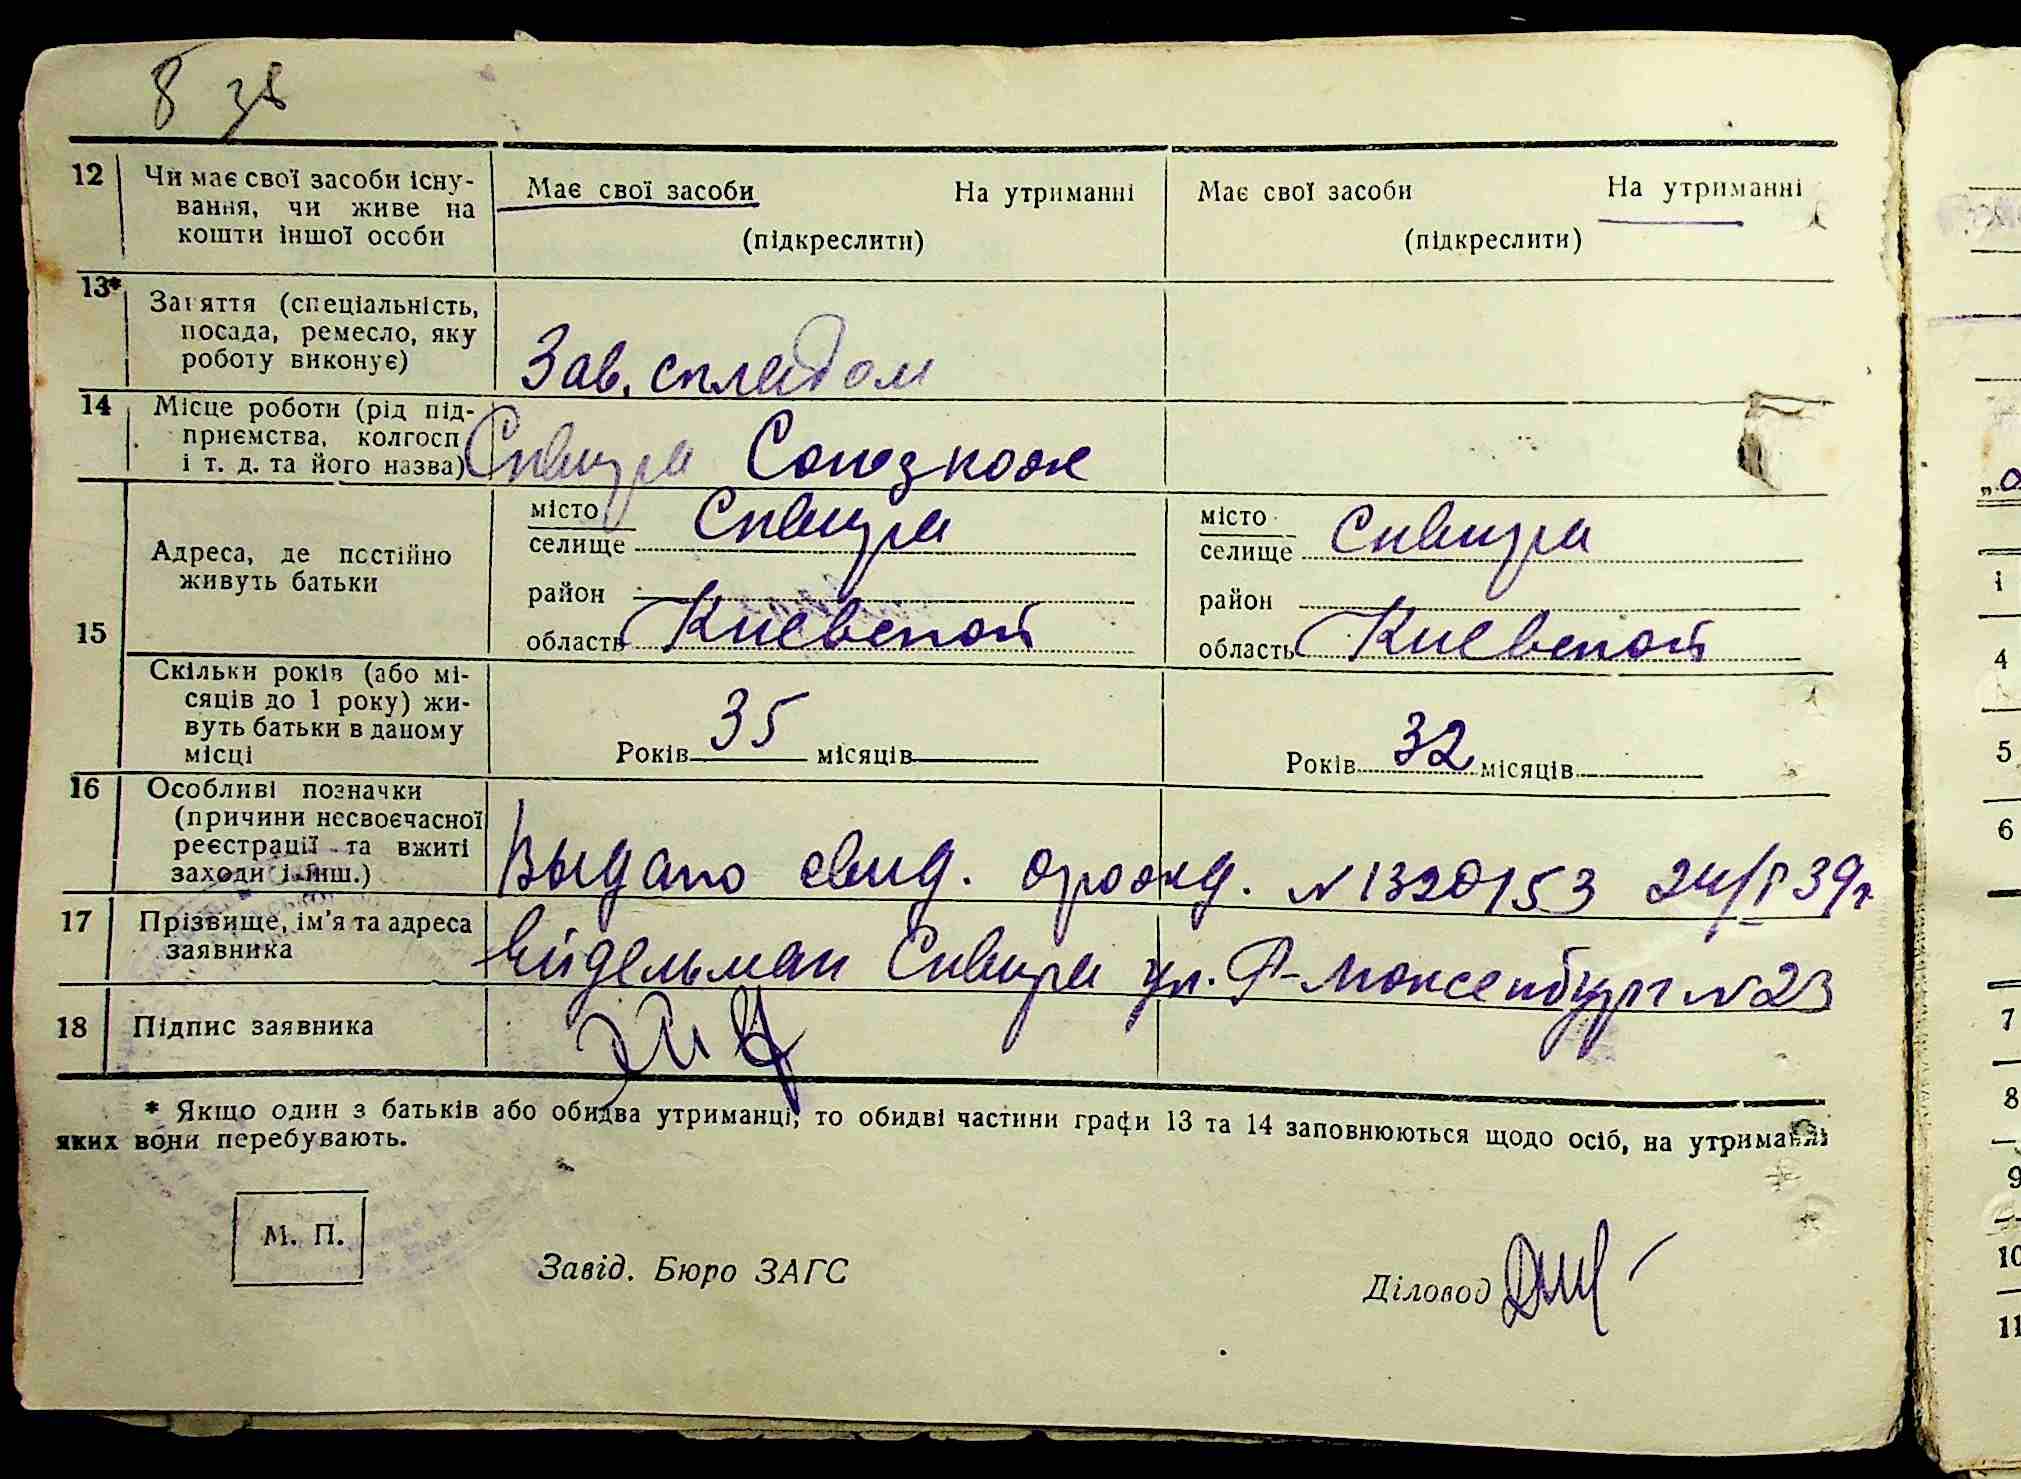 8 зв
12 Чи має свої засоби існу-
вання, чи живе на
кошти іншої особи
Має свої засоби На утриманні
(підкреслити)
Має свої засоби На утриманні
(підкреслити)
13* Заняття (спеціальність,
посада, ремесло, яку
роботу виконує)
Зав. складом
14 Місце роботи (рід під-
приємства, колгосп
і т. д. та його назва)
Сквира Союзкож
15
Адреса, де постійно
живуть батьки
місто
селище Сквира
район
область Киевской
місто
селище Сквира
район
область Киевской
Скільки років (або мі-
сяців до 1 року) жи-
вуть батьки в даному
місці
Років 35 місяців
Років 32 місяців
16 Особливі позначки
(причини несвоєчасної
реєстрації та вжиті
заходи і інш.)
Выдано свид. о рожд. N 1320153 24/I 39г.
17 Прізвище, ім'я та адреса
заявника
Ейдельман Сквира ул. Р-Люксенбург N 23
18 Підпис заявника
* Якщо один з батьків або обидва утриманці, то обидві частини графи 13 та 14 заповнюються щодо осіб, на утриманні
яких вони перебувають.
М. П.
Завід. Бюро ЗАГС
Діловод
1
4
5
6
7
8
9
10
11